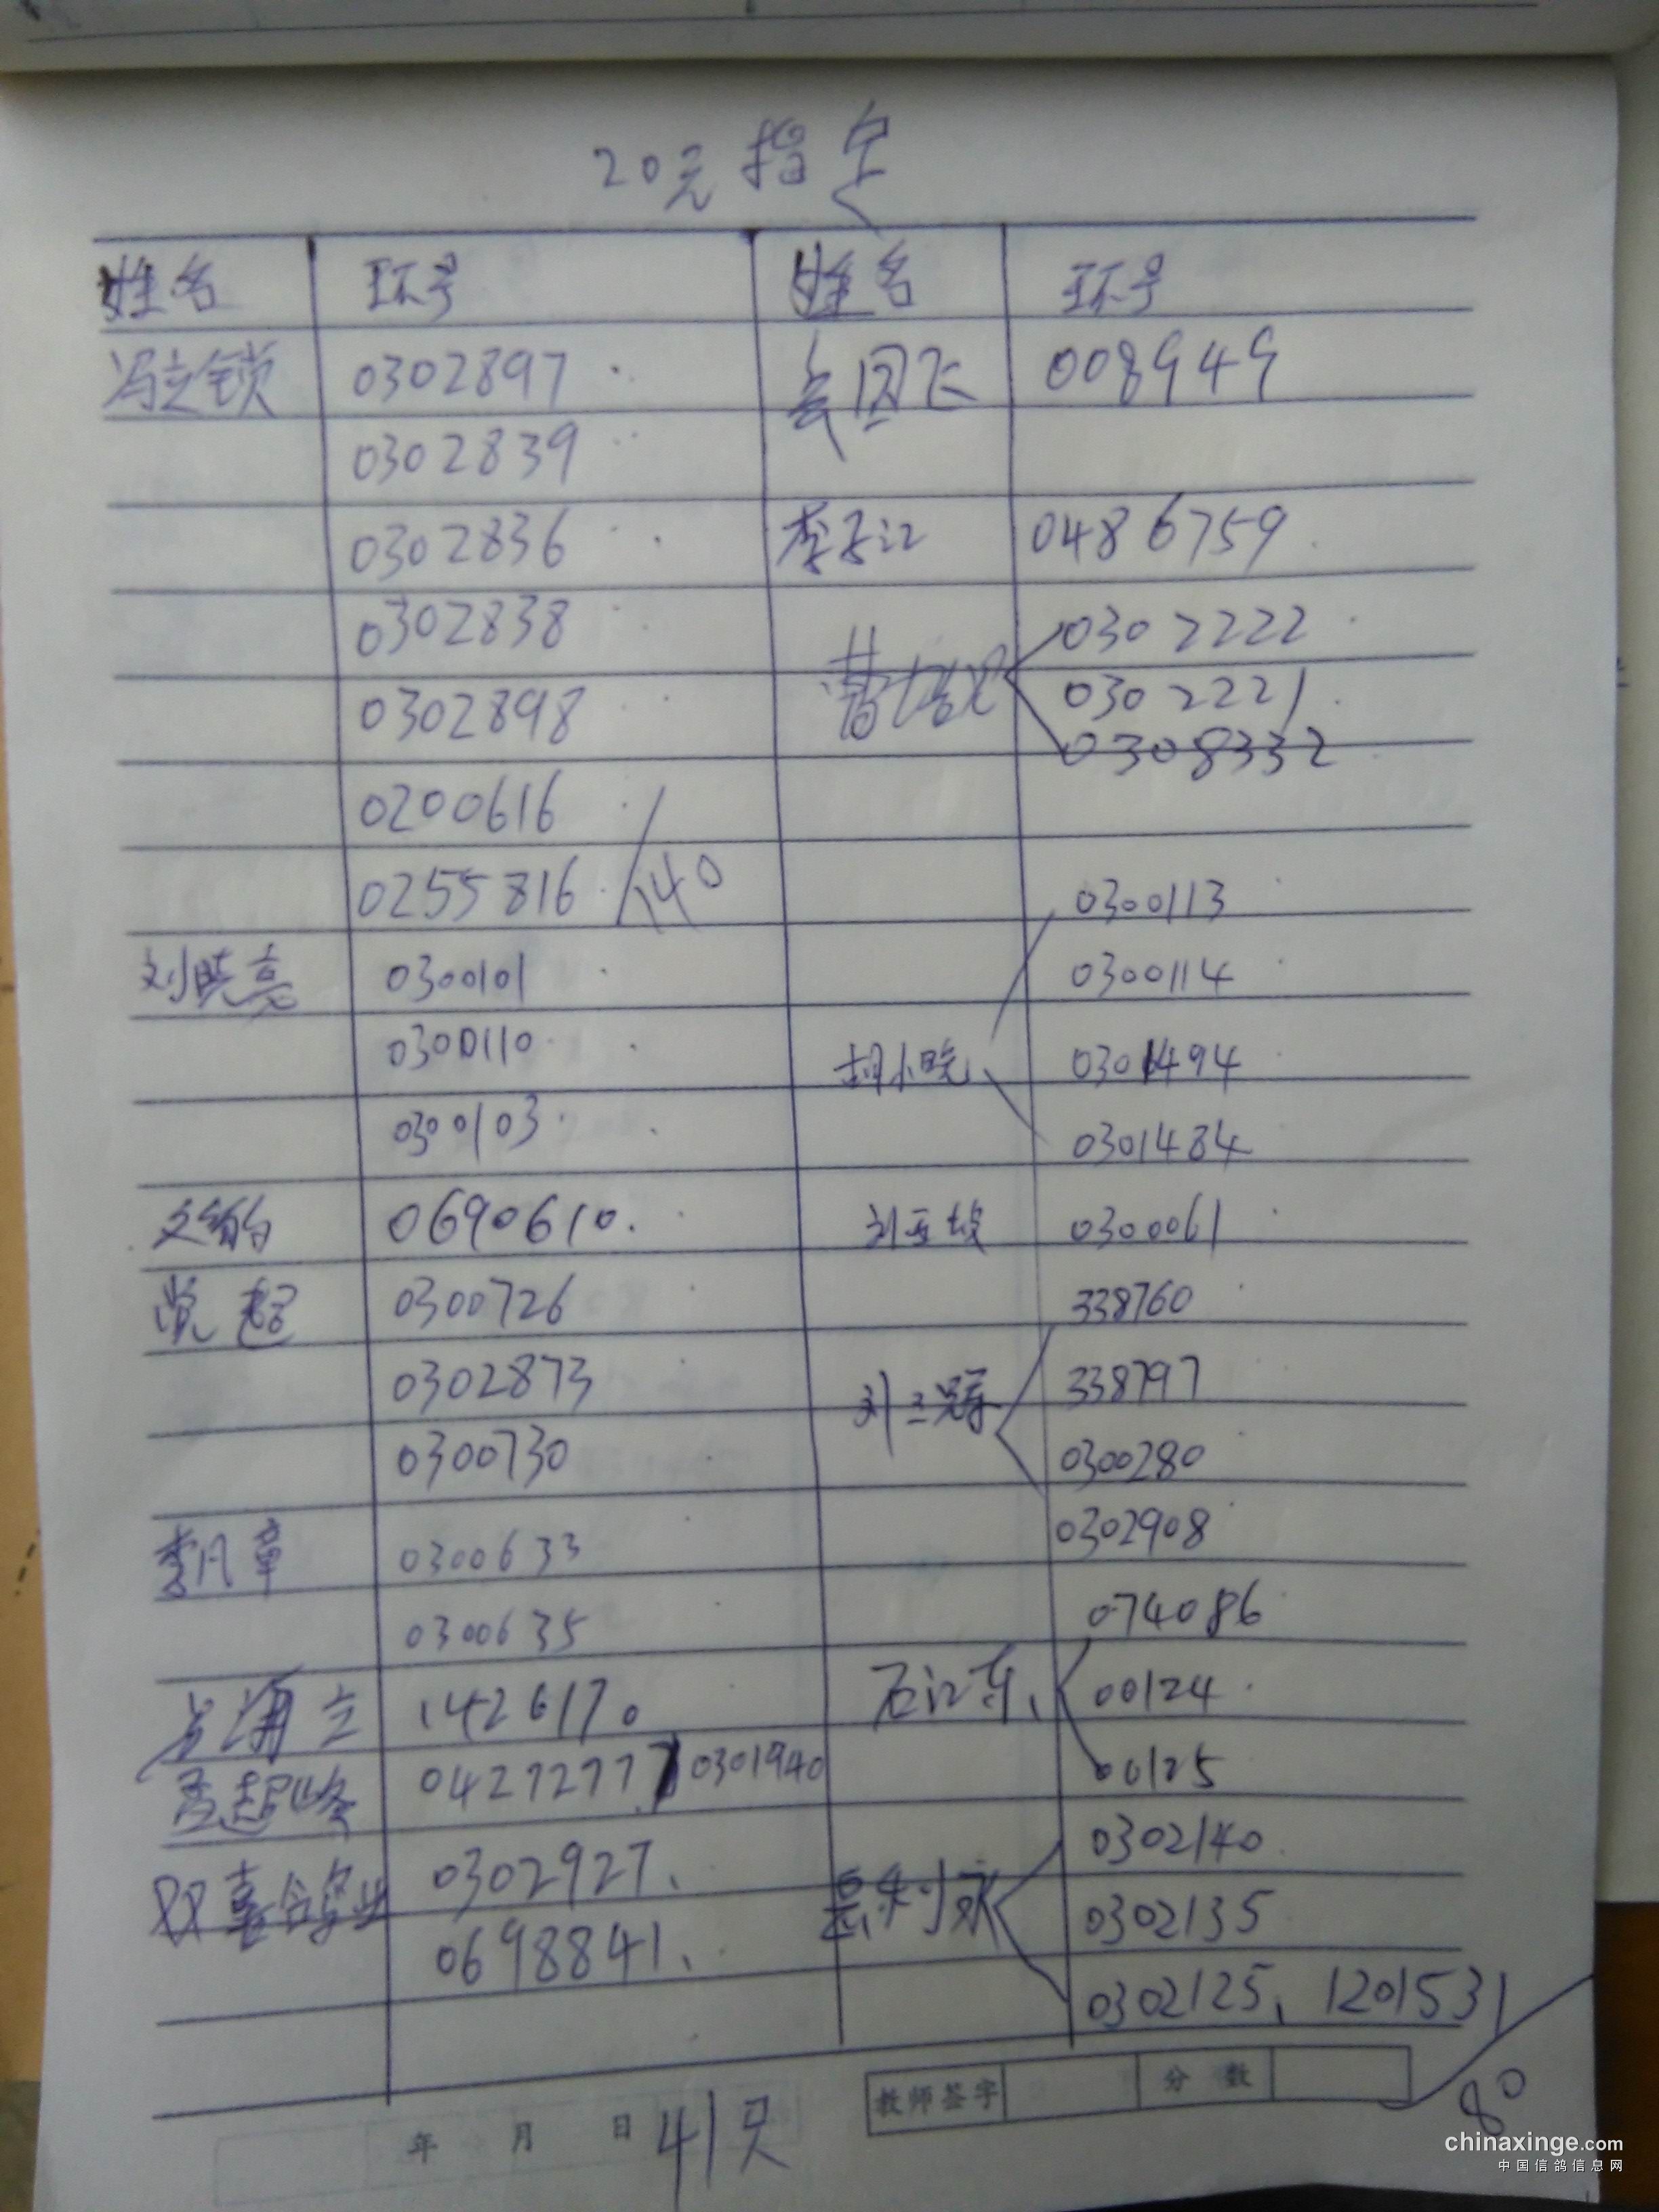 20元指定
姓名 环号 姓名 环号
冯立锁 0302897 国飞 008949
0302839
0302836 李子江 0486759
0302838 0302222
0302898 0302221
0308332
0200616
0255816 140 0300113
刘晓亮 0300101 0300114
0300110 胡小晓 0301494
0300103 0301484
0690610 刘亚坡 0300061
党超 0300726 338760
0302873 刘三冠 338797
0300730 0300280
李月章 0300633 0302908
0300635 074086
立 1426170 石江东 00124
孟超峰 04272777 0301940 00125
双喜鸽业 0302927 0302140
0698841 利 0302135
0302125、1201531
80
教师签字 分数
年 月 日 41只
chinaxinge.com
中国信鸽信息网